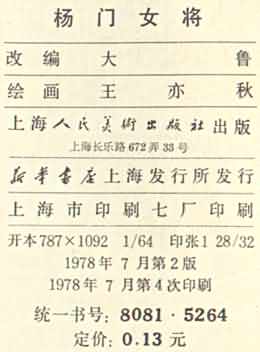 杨门女将
改编大鲁
绘画王亦秋
上海人民美術出版社出版
上海长乐路672弄33号
新华書店上海发行所发行
上海市印刷七厂印刷
开本787×1092 1/64 印张1 28/32
1978年7月第2版
1978年7月第4次印刷
统一书号：8081·5264
定价：0.13元